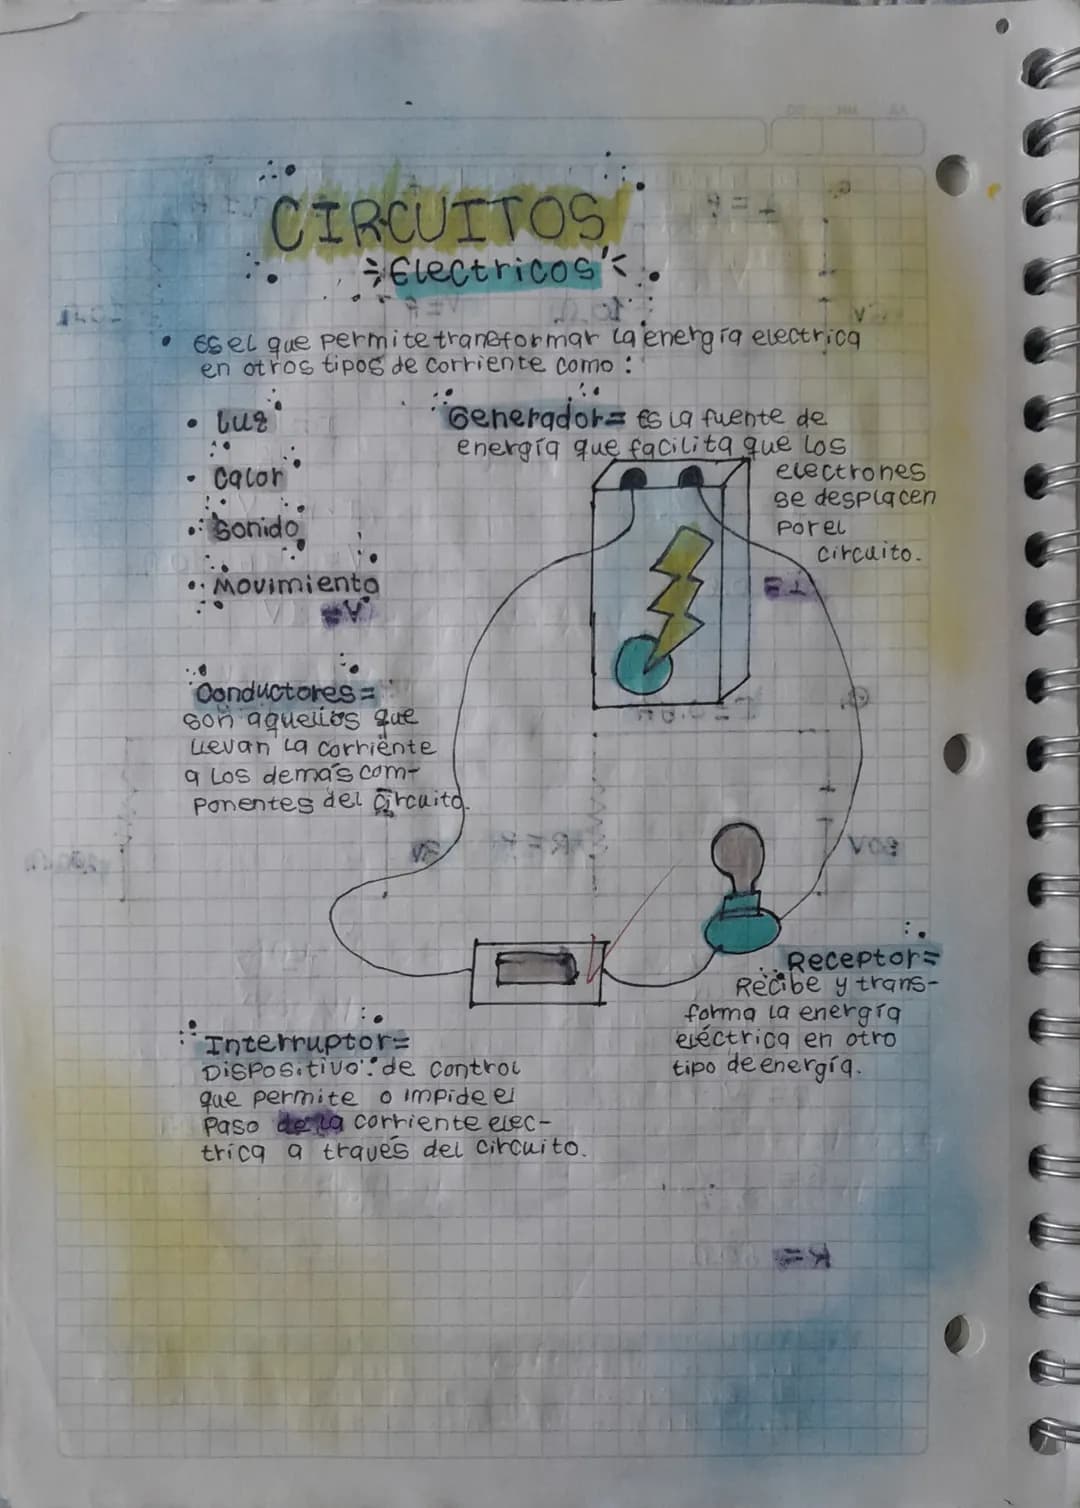 CIRCUITOS
Electricos
Es el que permite transformar la energía electrica
en otros tipos de corriente como:
• Luz
• Calor
• Sonido
• Movimiento
Generador= Es la fuente de
energía que facilita que los
electrones
se desplacen
por el
circuito.
Conductores=
son aquellos que
llevan la corriente
a los demás com-
ponentes del circuito.
Receptor=
Recibe y trans-
forma la energía
eléctrica en otro
tipo de energía.
Interruptor=
Dispositivo de control
que permite o impide el
paso de la corriente elec-
trica a través del circuito.